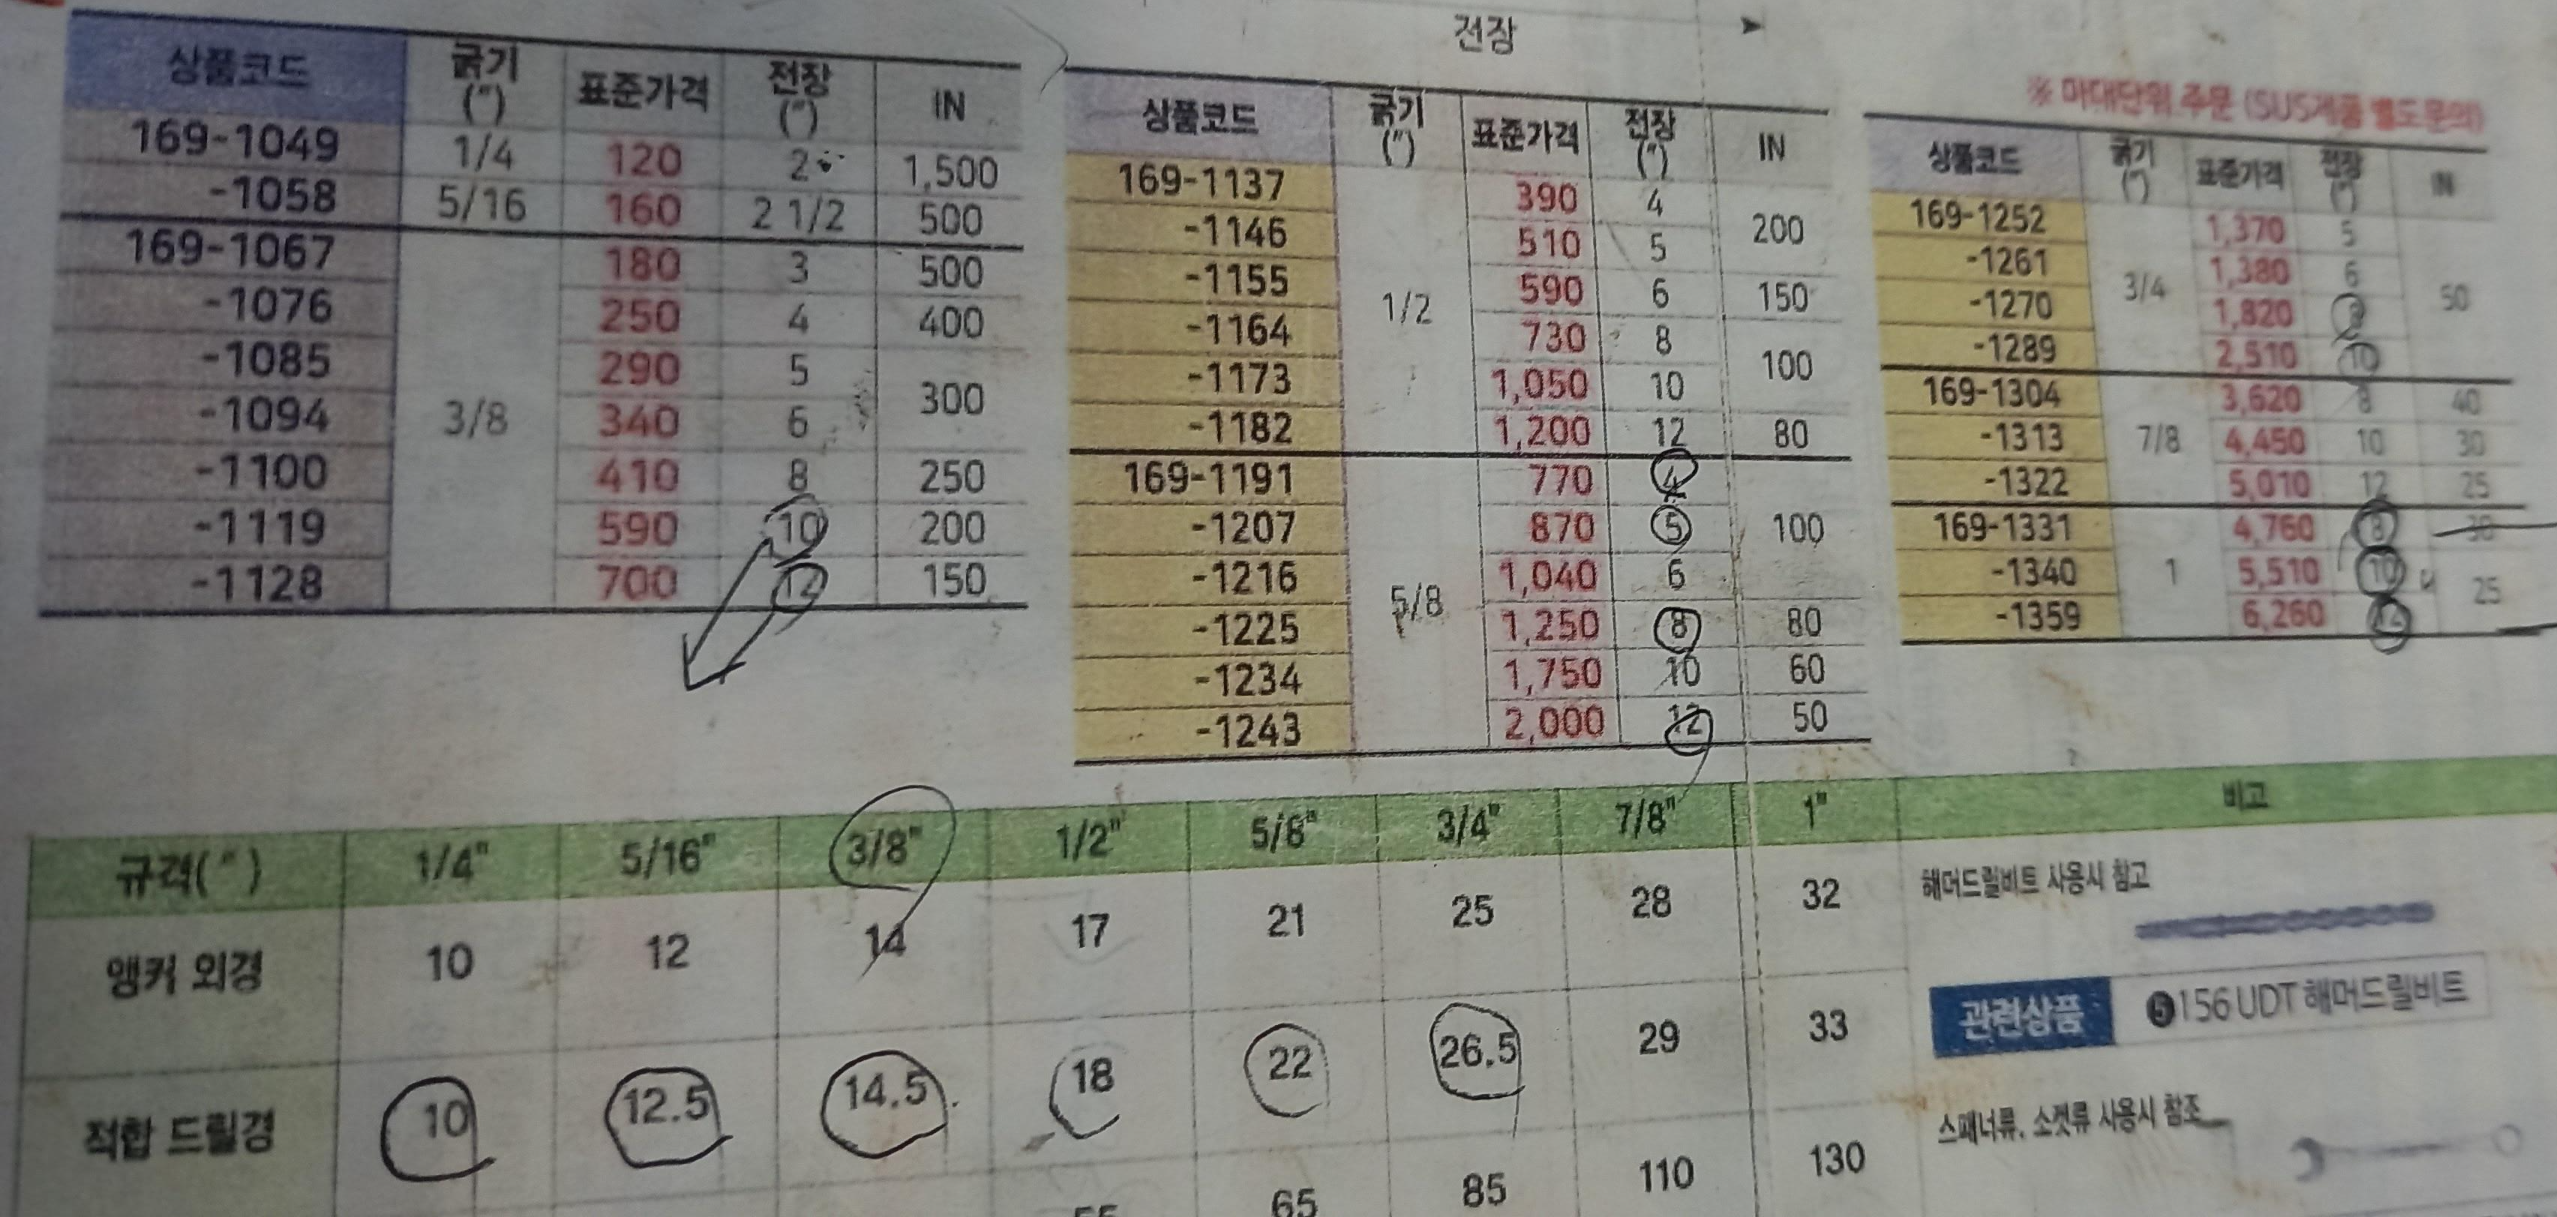 전장
※ 마대단위 주문 (SUS제품 별도문의)
상품코드 굵기(") 표준가격 전장(") IN
169-1049 1/4 120 2 1,500
-1058 5/16 160 2 1/2 500
169-1067 3/8 180 3 500
-1076 250 4 400
-1085 290 5 300
-1094 340 6
-1100 410 8 250
-1119 590 10 200
-1128 700 12 150
상품코드 굵기(") 표준가격 전장(") IN
169-1137 1/2 390 4 200
-1146 510 5
-1155 590 6 150
-1164 730 8 100
-1173 1,050 10
-1182 1,200 12 80
169-1191 5/8 770 4 100
-1207 870 5
-1216 1,040 6
-1225 1,250 8 80
-1234 1,750 10 60
-1243 2,000 12 50
상품코드 굵기(") 표준가격 전장(") IN
169-1252 3/4 1,370 5 50
-1261 1,380 6
-1270 1,820 8
-1289 2,510 10
169-1304 7/8 3,620 8 40
-1313 4,450 10 30
-1322 5,010 12 25
169-1331 1 4,760 8 30
-1340 5,510 10 25
-1359 6,260 12
규격(") 1/4" 5/16" 3/8" 1/2" 5/8" 3/4" 7/8" 1" 비고
앵커 외경 10 12 14 17 21 25 28 32 해머드릴비트 사용시 참고
관련상품 ❺156 UDT 해머드릴비트
적합 드릴경 10 12.5 14.5 18 22 26.5 29 33
스패너류, 소켓류 사용시 참조
55 65 85 110 130